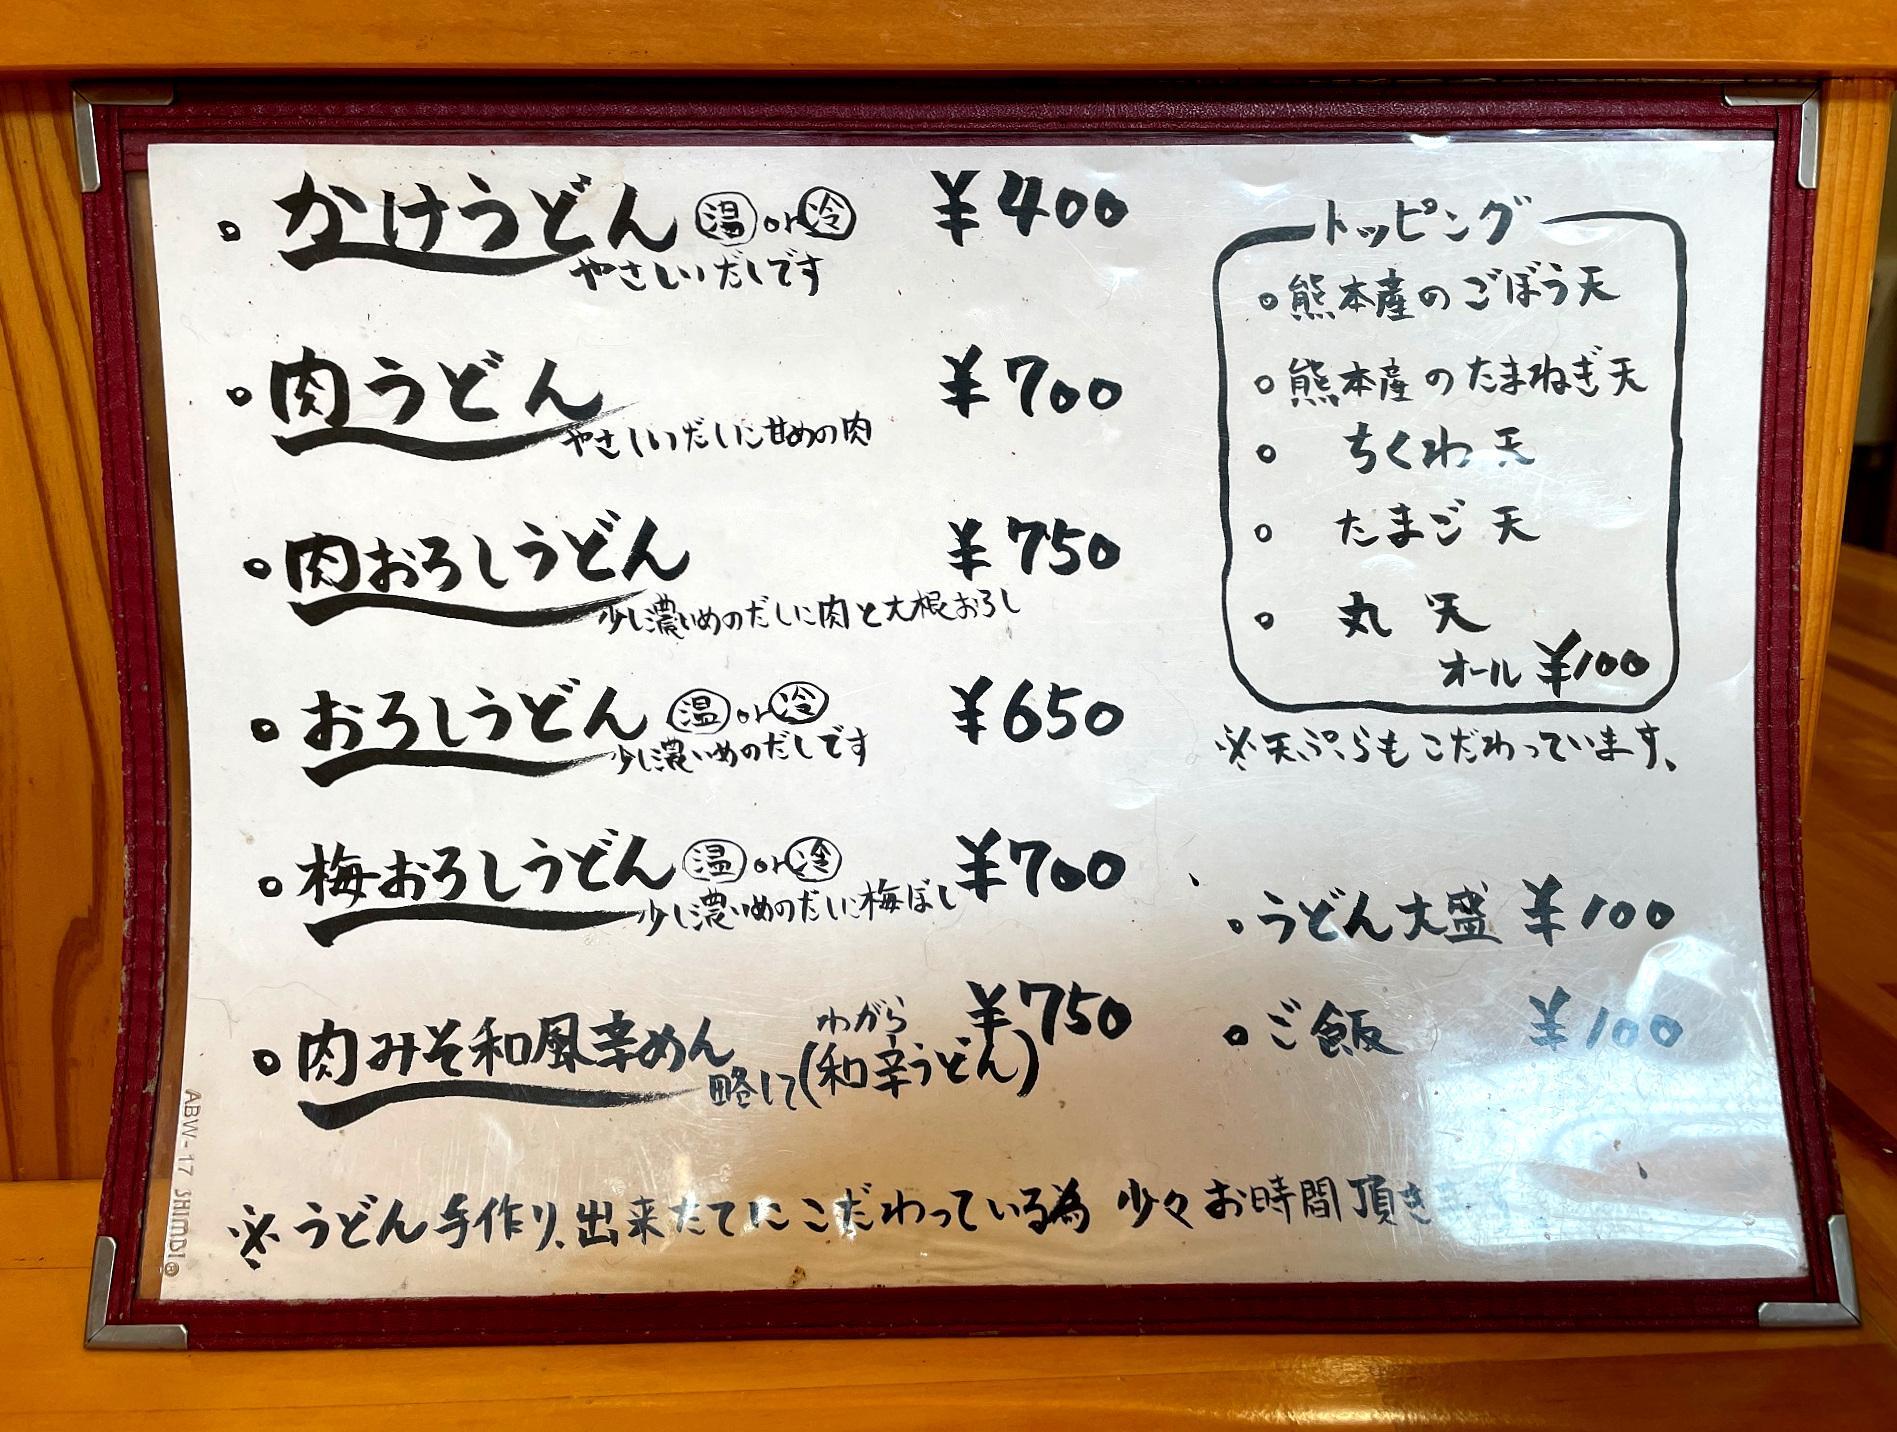 。かけうどん 温or冷 ¥400
やさしいだしです
。肉うどん ¥700
やさしいだしに甘めの肉
。肉おろしうどん ¥750
少し濃いめのだしに肉と大根おろし
。おろしうどん 温or冷 ¥650
少し濃いめのだしです
。梅おろしうどん 温or冷 ¥700
少し濃いめのだしに梅ぼし
。肉みそ和風辛めん ¥750
わがら
略して(和辛うどん)
トッピング
。熊本産のごぼう天
。熊本産のたまねぎ天
。ちくわ天
。たまご天
。丸天
オール ¥100
※天ぷらもこだわっています、
。うどん大盛 ¥100
。ご飯 ¥100
※うどん手作り、出来たてにこだわっている為 少々お時間頂き
ABW-17 SHIMBI®